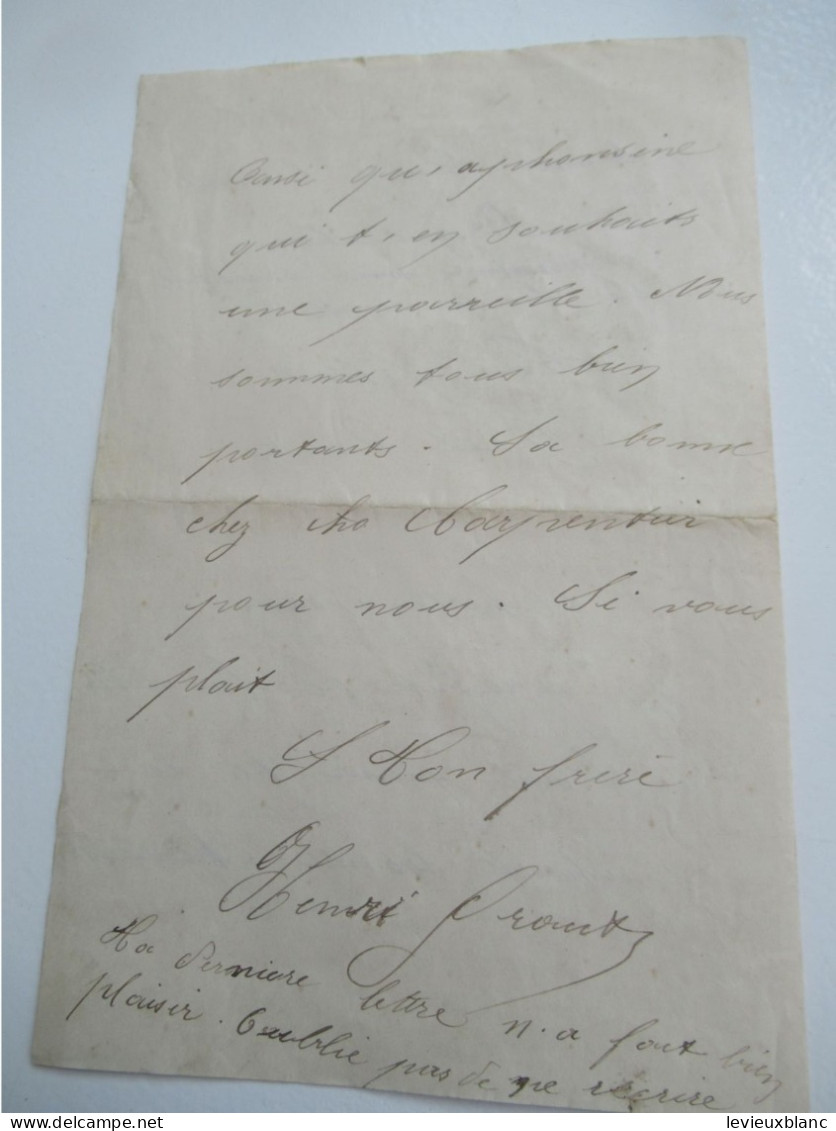 ainsi qu, aphonsine
qui t, en souhaits
une parreille. Nous
sommes tous bien
portants. La bonne
chez Carpentier
pour nous. Si vous
plait
Ton frere
Henri
Ta derniere lettre n.a fait bien
plaisir. Oublie pas de recrire
levieuxblanc